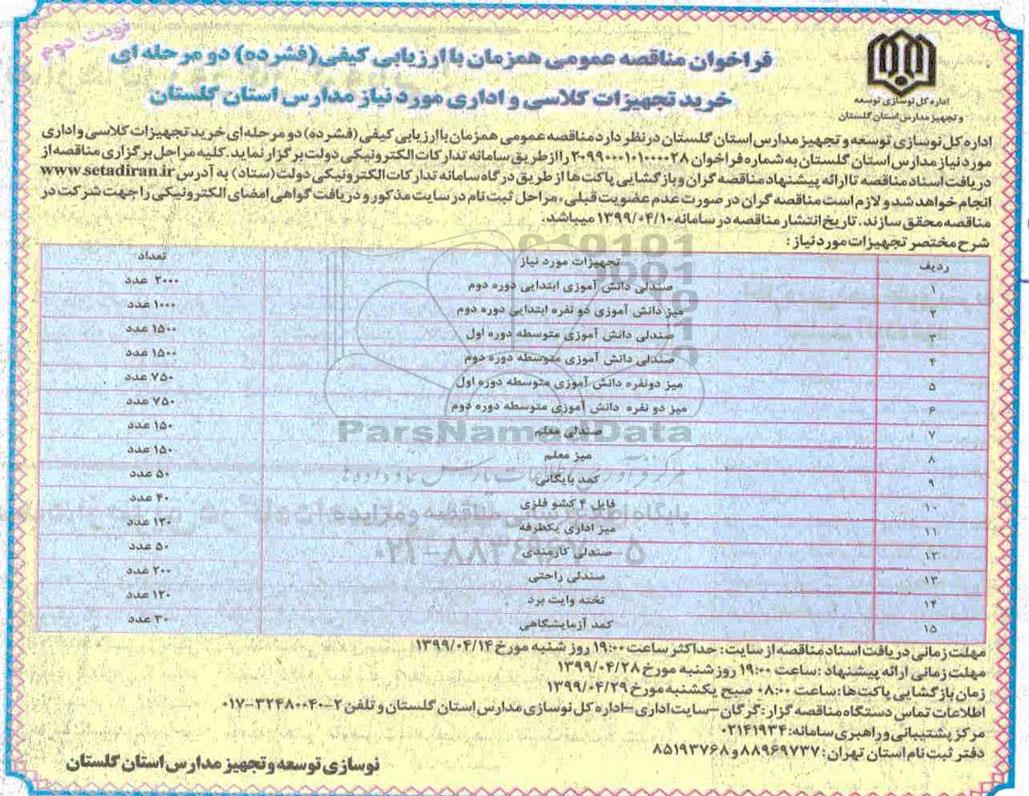 نوبت دوم
فراخوان مناقصه عمومی همزمان با ارزیابی کیفی (فشرده) دو مرحله ای
خرید تجهیزات کلاسی و اداری مورد نیاز مدارس استان گلستان
اداره کل نوسازی توسعه
و تجهیز مدارس استان گلستان
اداره کل نوسازی توسعه و تجهیز مدارس استان گلستان در نظر دارد مناقصه عمومی همزمان با ارزیابی کیفی (فشرده) دو مرحله ای خرید تجهیزات کلاسی و اداری
مورد نیاز مدارس استان گلستان به شماره فراخوان ۲۰۹۹۰۰۰۱۰۱۰۰۰۰۲۸ را از طریق سامانه تدارکات الکترونیکی دولت برگزار نماید. کلیه مراحل برگزاری مناقصه از
دریافت اسناد مناقصه تا ارائه پیشنهاد مناقصه گران و بازگشایی پاکت ها از طریق درگاه سامانه تدارکات الکترونیکی دولت (ستاد) به آدرس www.setadiran.ir
انجام خواهد شد و لازم است مناقصه گران در صورت عدم عضویت قبلی، مراحل ثبت نام در سایت مذکور و دریافت گواهی امضای الکترونیکی را جهت شرکت در
مناقصه محقق سازند. تاریخ انتشار مناقصه در سامانه ۱۳۹۹/۰۴/۱۰ میباشد.
شرح مختصر تجهیزات مورد نیاز:
ردیف تجهیزات مورد نیاز تعداد
۱ صندلی دانش آموزی ابتدایی دوره دوم ۲۰۰۰ عدد
۲ میز دانش آموزی دو نفره ابتدایی دوره دوم ۱۰۰۰ عدد
۳ صندلی دانش آموزی متوسطه دوره اول ۱۵۰۰ عدد
۴ صندلی دانش آموزی متوسطه دوره دوم ۱۵۰۰ عدد
۵ میز دونفره دانش آموزی متوسطه دوره اول ۷۵۰ عدد
۶ میز دو نفره دانش آموزی متوسطه دوره دوم ۷۵۰ عدد
۷ صندلی معلم ۱۵۰ عدد
۸ میز معلم ۱۵۰ عدد
۹ کمد بایگانی ۵۰ عدد
۱۰ فایل ۴ کشو فلزی ۴۰ عدد
۱۱ میز اداری یکطرفه ۱۲۰ عدد
۱۲ صندلی کارمندی ۵۰ عدد
۱۳ صندلی راحتی ۲۰۰ عدد
۱۴ تخته وایت برد ۱۲۰ عدد
۱۵ کمد آزمایشگاهی ۳۰ عدد
ParsNamadData
مرکز فرآوری اطلاعات پارس نماد داده ها
۰۲۱-۸۸۳۴۹۶۷۰-۵
مهلت زمانی دریافت اسناد مناقصه از سایت: حداکثر ساعت ۱۹:۰۰ روز شنبه مورخ ۱۳۹۹/۰۴/۱۴
مهلت زمانی ارائه پیشنهاد: ساعت ۱۹:۰۰ روز شنبه مورخ ۱۳۹۹/۰۴/۲۸
زمان بازگشایی پاکت ها: ساعت ۰۸:۰۰ صبح یکشنبه مورخ ۱۳۹۹/۰۴/۲۹
اطلاعات تماس دستگاه مناقصه گزار: گرگان - سایت اداری - اداره کل نوسازی مدارس استان گلستان و تلفن ۲-۳۲۴۸۰۰۴۰-۰۱۷
مرکز پشتیبانی و راهبری سامانه: ۰۲۱۴۱۹۳۴
دفتر ثبت نام استان تهران: ۸۸۹۶۹۷۳۷ و ۸۵۱۹۳۷۶۸
نوسازی توسعه و تجهیز مدارس استان گلستان